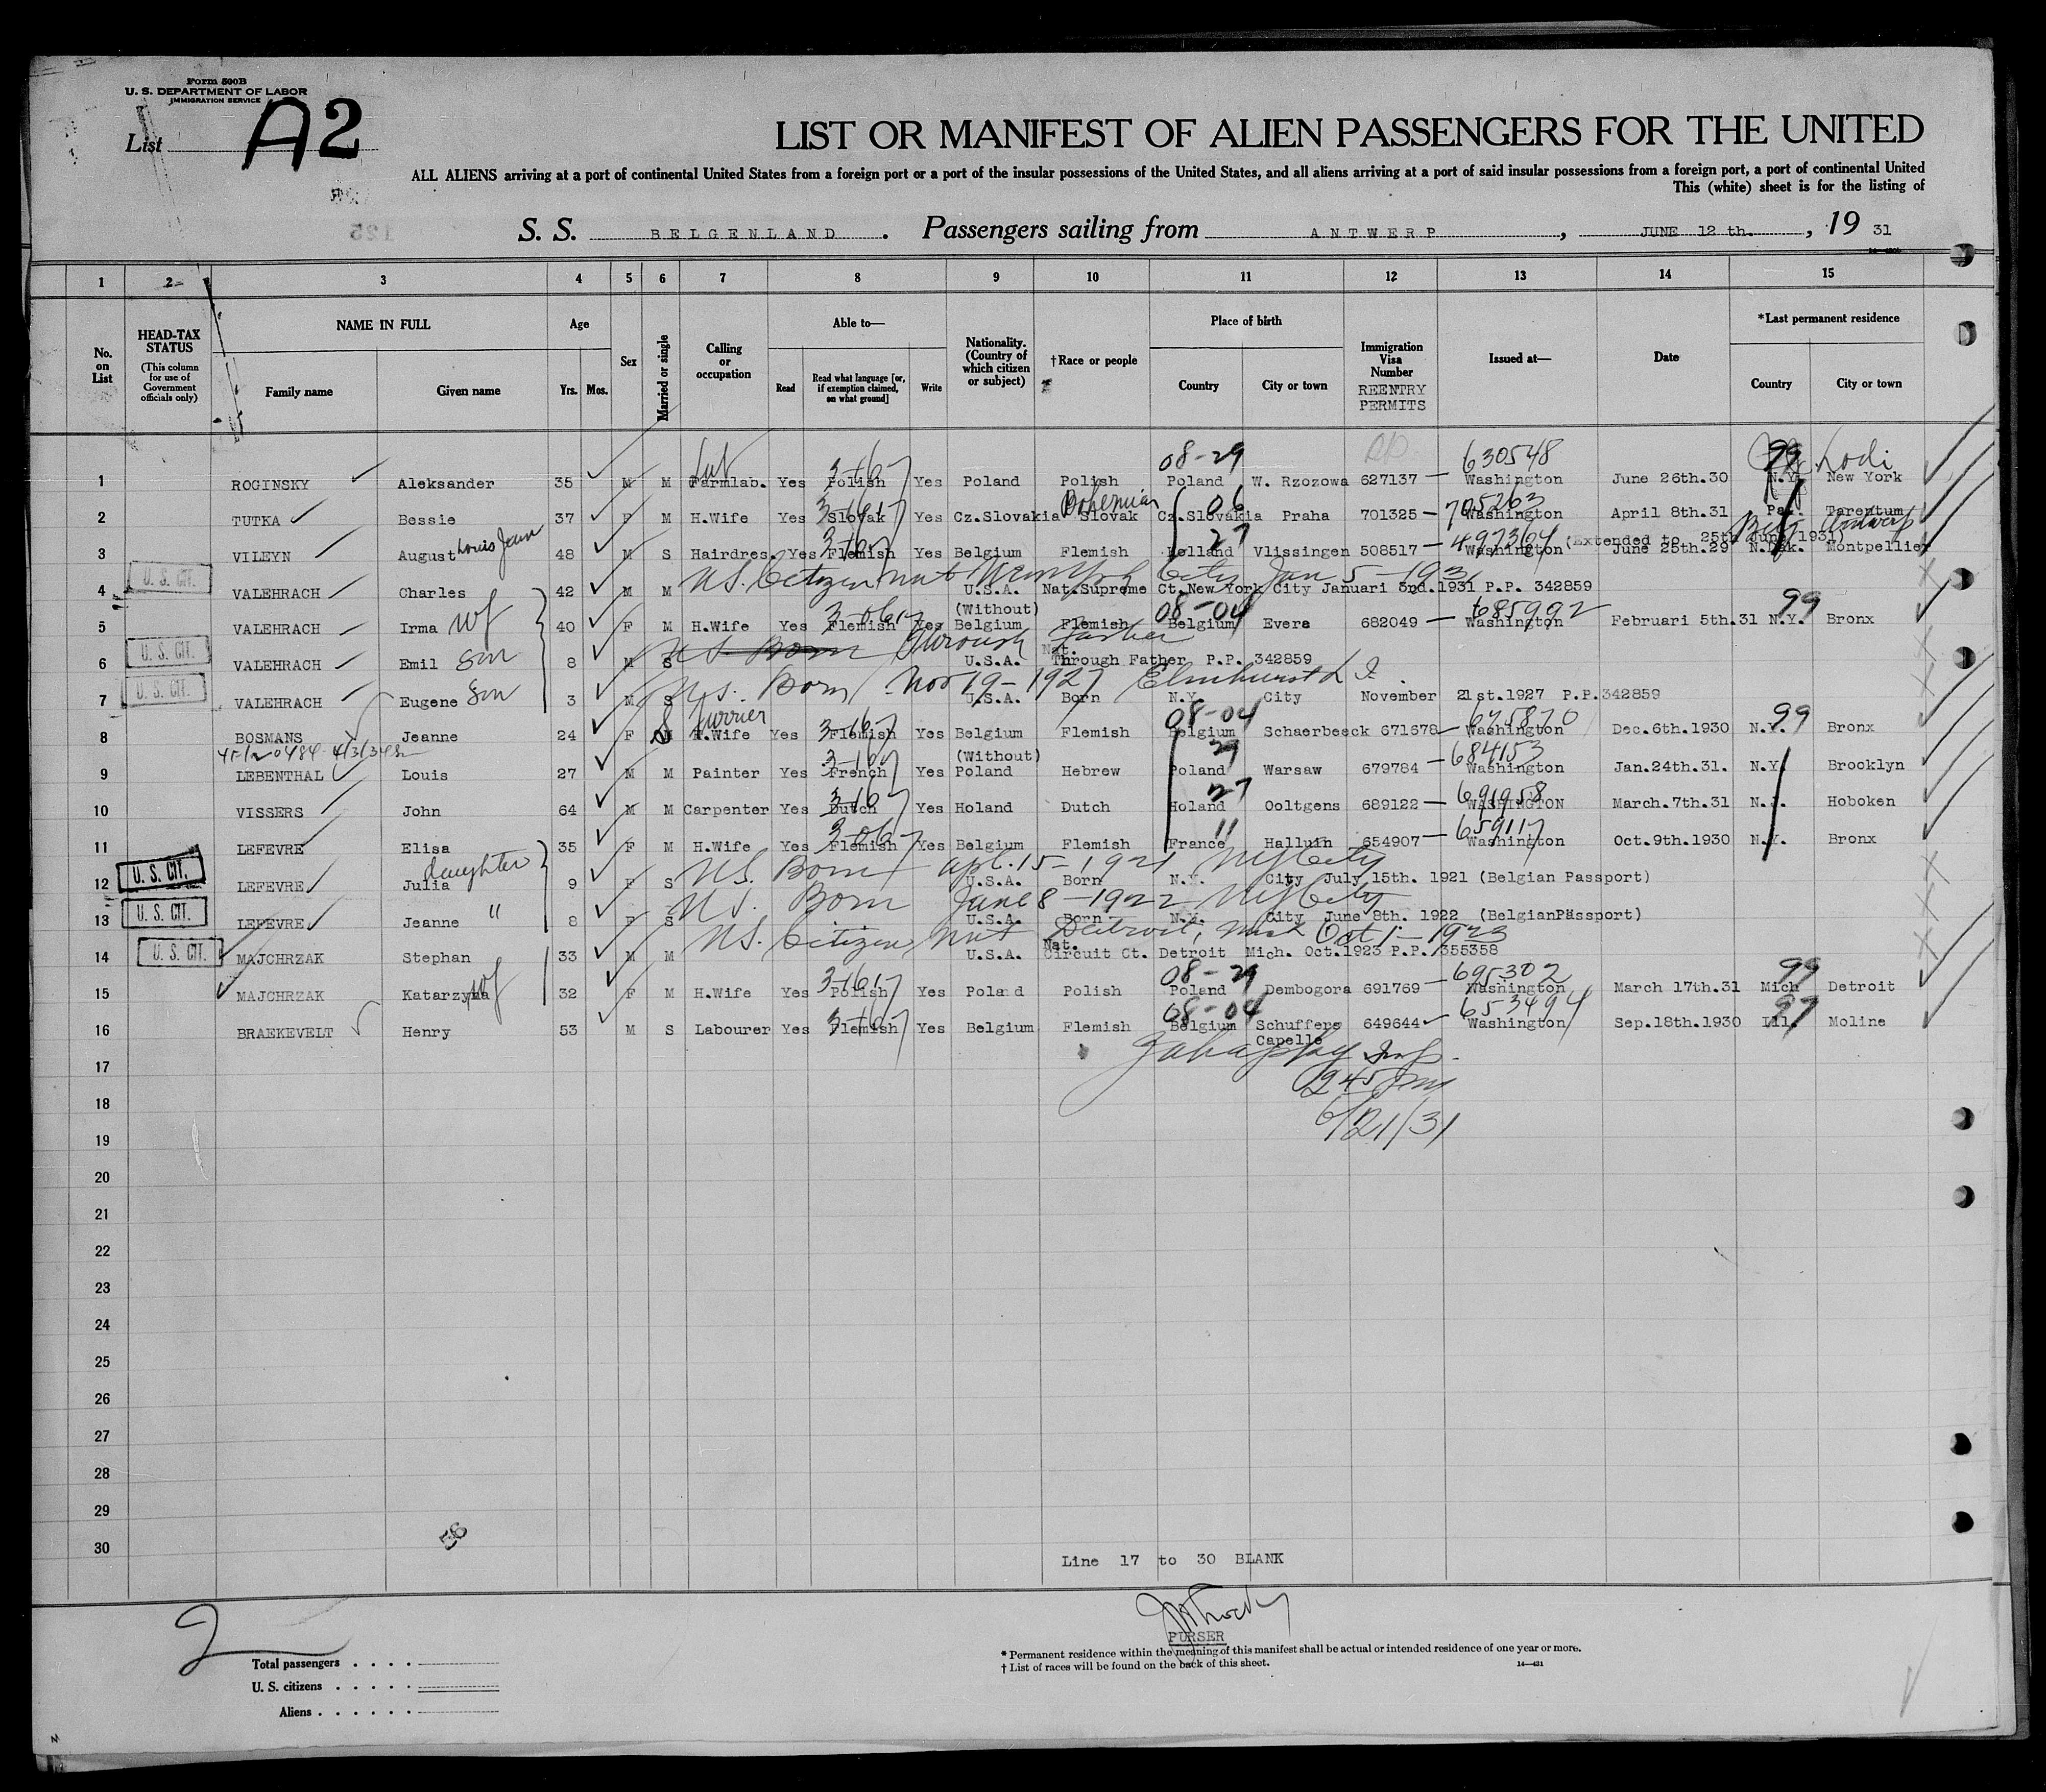 Form 500B
U. S. DEPARTMENT OF LABOR
IMMIGRATION SERVICE
List A2
LIST OR MANIFEST OF ALIEN PASSENGERS FOR THE UNITED
ALL ALIENS arriving at a port of continental United States from a foreign port or a port of the insular possessions of the United States, and all aliens arriving at a port of said insular possessions from a foreign port, a port of continental United
This (white) sheet is for the listing of
S. S. BELGENLAND . Passengers sailing from ANTWERP , JUNE 12 th. , 19 31
1 2 3 4 5 6 7 8 9 10 11 12 13 14 15
No. on List
HEAD-TAX STATUS
(This column for use of Government officials only)
NAME IN FULL
Family name Given name
Age
Yrs. Mos.
Sex
Married or single
Calling or occupation
Able to—
Read Read what language [or, if exemption claimed, on what ground] Write
Nationality. (Country of which citizen or subject)
†Race or people
Place of birth
Country City or town
Immigration Visa Number
REENTRY PERMITS
Issued at—
Date
*Last permanent residence
Country City or town
08-29 630548 99 Lodi
1 ROGINSKY Aleksander 35 M M Farmlab. Yes Polish Yes Poland Polish Poland W. Rzozowa 627137 Washington June 26th.30 N.Y. New York
Bohemian 06 705263
2 TUTKA Bessie 37 F M H.Wife Yes Slovak Yes Cz.Slovakia Slovak Cz.Slovakia Praha 701325 Washington April 8th.31 Pa. Tarentum
Louis Jean 27 497364 (Extended to 25th June 1931) Antwerp
3 VILEYN August 48 M S Hairdres. Yes Flemish Yes Belgium Flemish Holland Vlissingen 508517 Washington June 25th.29 N.Dak. Montpellier
U. S. CIT. US. Citizen nat New York City Jan 5-1931
4 VALEHRACH Charles 42 M M U.S.A. Nat.Supreme Ct.New York City Januari 3nd.1931 P.P. 342859
(Without) 08-04 685992 99
5 VALEHRACH Irma wf 40 F M H.Wife Yes Flemish Yes Belgium Flemish Belgium Evere 682049 Washington Februari 5th.31 N.Y. Bronx
U. S. CIT. US Born Through Father
Nat.
6 VALEHRACH Emil son 8 M S U.S.A. Through Father P.P. 342859
U. S. CIT. US. Born Nov 19-1927 Elmhurst L I.
7 VALEHRACH Eugene son 3 M S U.S.A. Born N.Y. City November 21st.1927 P.P.342859
furrier 08-04 675870 99
8 BOSMANS Jeanne 24 F M H.Wife Yes Flemish Yes Belgium Flemish Belgium Schaerbeeck 671678 Washington Dec.6th.1930 N.Y. Bronx
(Without) 29 684153
9 LEBENTHAL Louis 27 M M Painter Yes French Yes Poland Hebrew Poland Warsaw 679784 Washington Jan.24th.31. N.Y. Brooklyn
27 691958
10 VISSERS John 64 M M Carpenter Yes Dutch Yes Holand Dutch Holand Ooltgens 689122 WASHINGTON March.7th.31 N.J. Hoboken
11 659117
11 LEFEVRE Elisa 35 F M H.Wife Yes Flemish Yes Belgium Flemish France Halluin 654907 Washington Oct.9th.1930 N.Y. Bronx
U. S. CIT. daughter US. Born apl. 15-1921 NY City
12 LEFEVRE Julia 9 F S U.S.A. Born N.Y. City July 15th. 1921 (Belgian Passport)
U. S. CIT. US. Born June 8-1922 NY City
13 LEFEVRE Jeanne " 8 F S U.S.A. Born N.Y. City June 8th. 1922 (BelgianPassport)
U. S. CIT. US. Citizen, nat Detroit, Mich Oct 1-1923
Nat.
14 MAJCHRZAK Stephan 33 M M U.S.A. Circuit Ct. Detroit Mich. Oct.1923 P.P. 355358
08-29 695302 99
15 MAJCHRZAK Katarzyna wf 32 F M H.Wife Yes Polish Yes Poland Polish Poland Dembogora 691769 Washington March 17th.31 Mich Detroit
08-04 653494 97
16 BRAEKEVELT Henry 53 M S Labourer Yes Flemish Yes Belgium Flemish Belgium Schuffers Capelle 649644 Washington Sep.18th.1930 Ill. Moline
17
245 pm
18
6/21/31
19
20
21
22
23
24
25
26
27
28
29
30
Line 17 to 30 BLANK
2
PURSER
Total passengers . . . .
U. S. citizens . . . . .
Aliens . . . . . .
* Permanent residence within the meaning of this manifest shall be actual or intended residence of one year or more.
† List of races will be found on the back of this sheet.
14—431